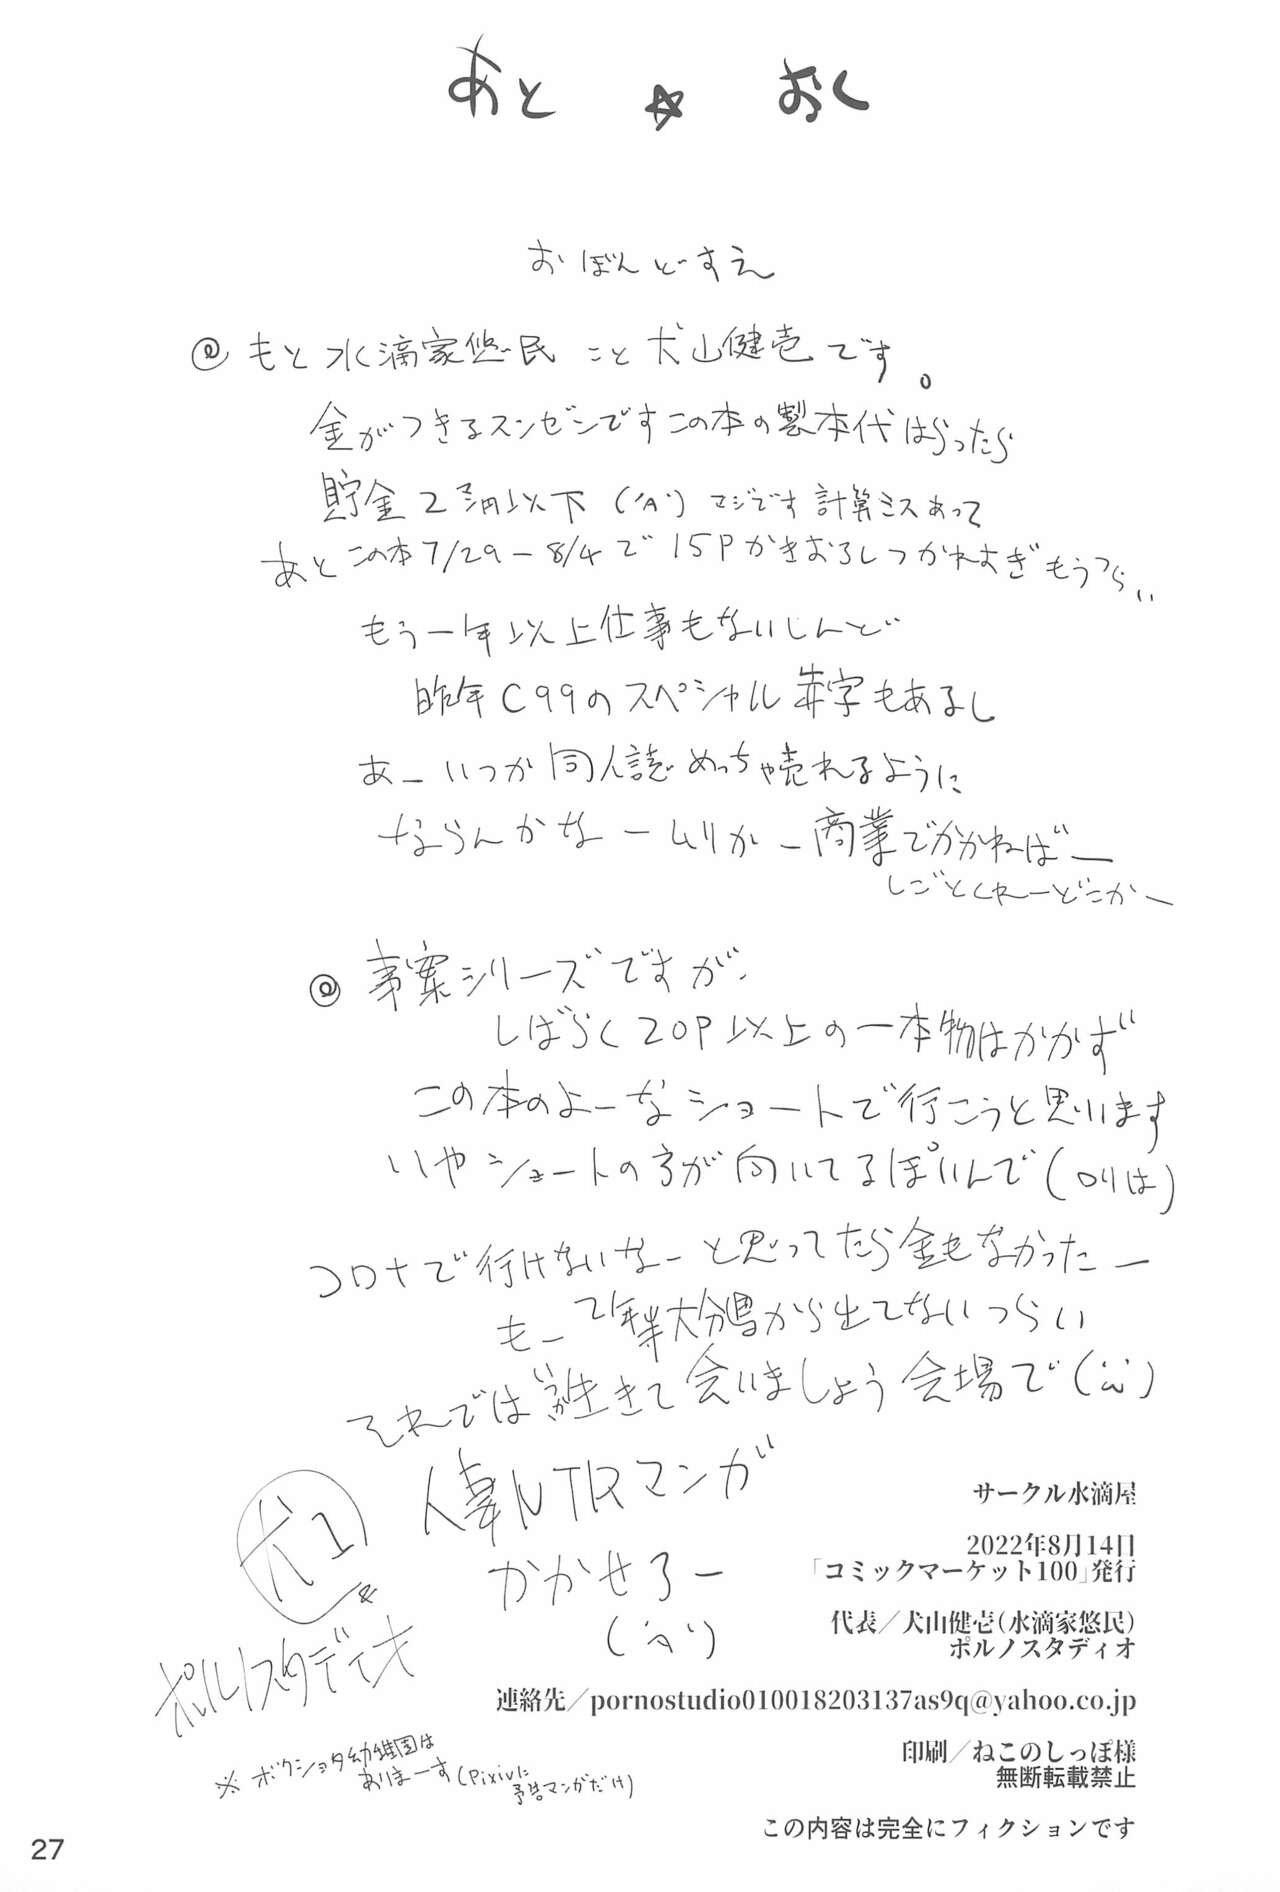 あと☆おく
おぼんどすえ
◎もと水滴家悠民こと犬山健壱です。
金がつきるスンゼンですこの本の製本代はらったら
貯金2万円以下(´A`)マジです計算ミスあって
あとこの本7/29-8/4で15Pかきおろしつかれすぎもうつらい
もう一年以上仕事もないしんど
昨年C99のスペシャル赤字もあるし
あーいつか同人誌めっちゃ売れるように
ならんかなームリかー商業でかかねばー
しごとくれーどこかー
◎事案シリーズですが、
しばらく20P以上の一本物はかかず
この本のよーなショートで行こうと思います
いやショートの方が向いてるぽいんで(ロリは)
コロナで行けないなーと思ってたら金もなかったー
もー2年半大分県から出てないつらい
それではいつか生きて会いましょう会場で(´ω`)
人妻NTRマンガ
かかせろー
(´A`)
犬1
ポルノスタディオ
※ボクショタ幼稚園は
ありまーす(Pixivに
予告マンガだけ)
サークル水滴屋
2022年8月14日
「コミックマーケット100」発行
代表／犬山健壱(水滴家悠民)
ポルノスタディオ
連絡先／pornostudio010018203137as9q@yahoo.co.jp
印刷／ねこのしっぽ様
無断転載禁止
この内容は完全にフィクションです
27